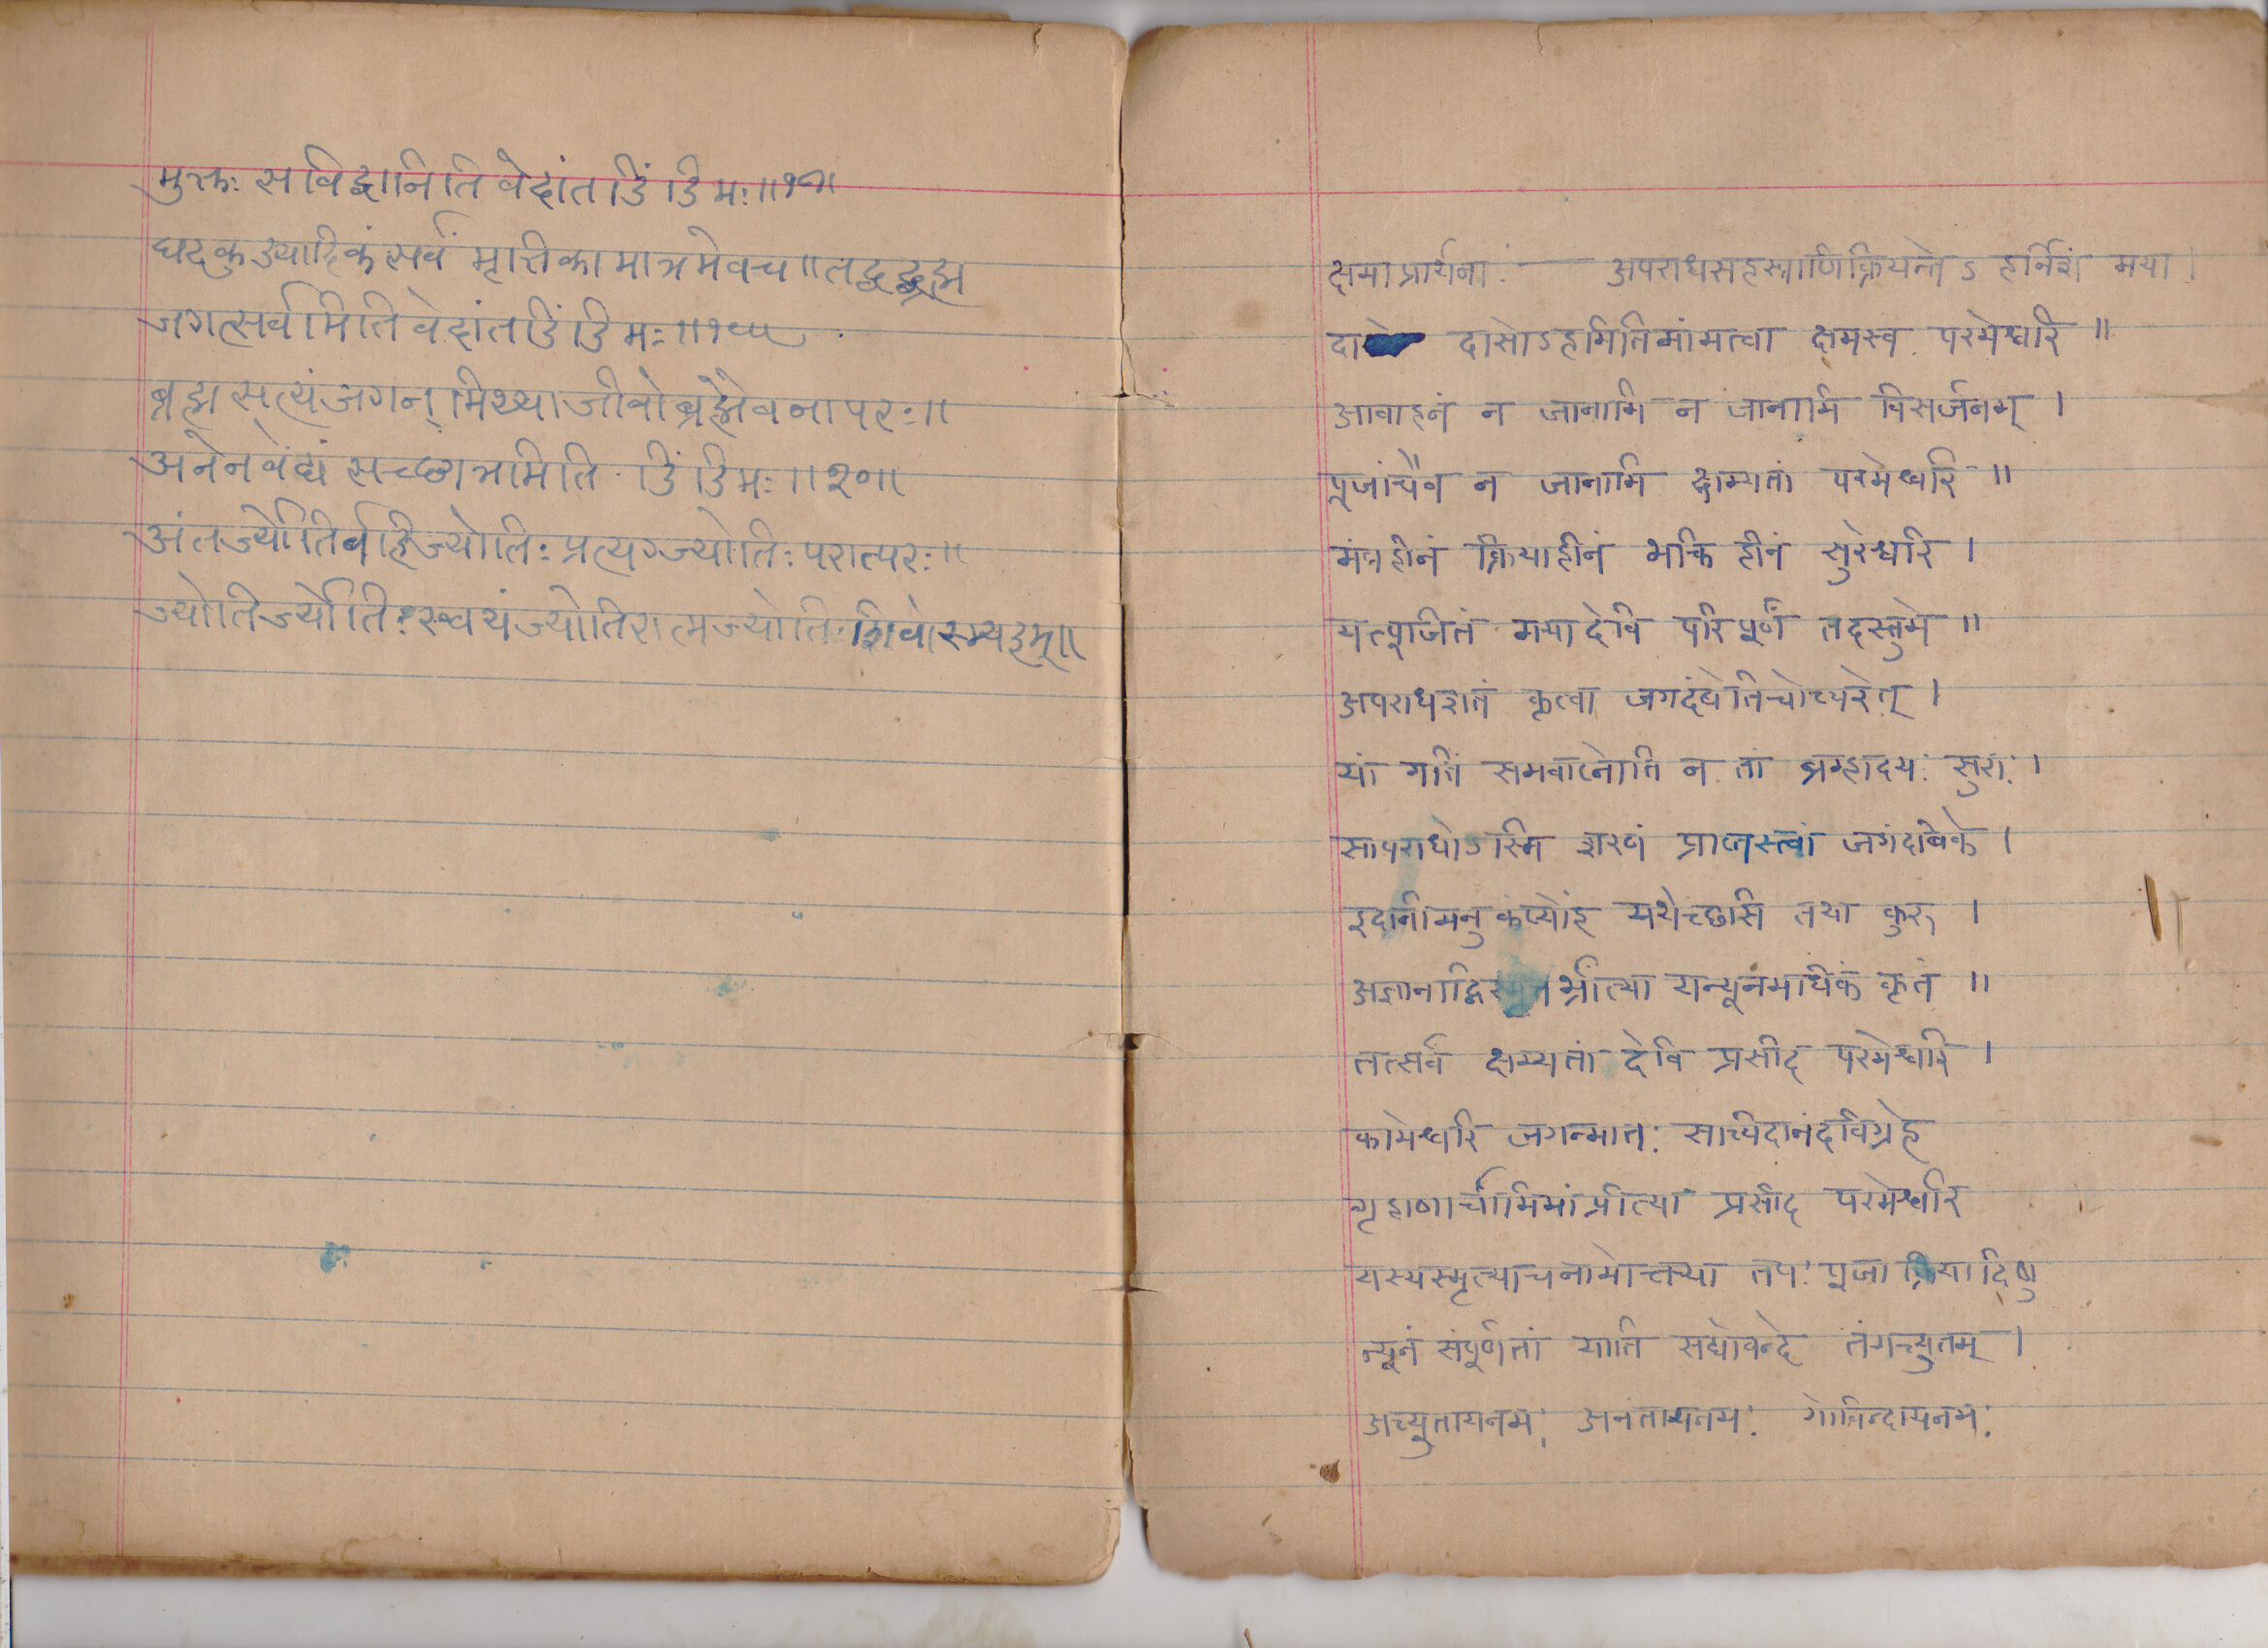 मुक्तः स विद्वानिति वेदांत डिं डिमः॥१८॥
घटकुड्यादिकं सर्वं मृत्तिका मात्रमेवच॥तद्वद्ब्रह्म
जगत्सर्वमिति वेदांत डिं डिमः॥१९॥
ब्रह्म सत्यं जगन् मिथ्या जीवो ब्रह्मैवनापरः॥
अनेन वेद्यं सच्छास्त्रमिति डिं डिमः॥२०॥
अंतर्ज्योतिर्बहिर्ज्योतिः प्रत्यग्ज्योतिः परात्परः॥
ज्योतिर्ज्योतिः स्वयंज्योतिरात्मज्योतिः शिवोस्म्यहम्॥
क्षमाप्रार्थना. — अपराधसहस्त्राणिक्रियन्ते ऽ हर्निशं मया।
दासोऽहमितिमांमत्वा क्षमस्व परमेश्वरि॥
आवाहनं न जानामि न जानामि विसर्जनम्।
पूजांचैव न जानामि क्षम्यतां परमेश्वरि॥
मंत्रहीनं क्रियाहीनं भक्ति हीनं सुरेश्वरि।
यत्पूजितं मयादेवि परिपूर्णं तदस्तुमे॥
अपराधशतं कृत्वा जगदंबेतिचोच्चरेत्।
यां गतिं समवाप्नोति न तां ब्रम्हादयः सुराः।
सापराधोऽस्मि शरणं प्राप्तस्त्वां जगंदबिके।
इदानीमनुकंप्योहं यथेच्छसि तथा कुरु।
अज्ञानाद्विस्मृतेर्भ्रांत्या यन्न्यूनमधिकं कृतं॥
तत्सर्वं क्षम्यतां देवि प्रसीद परमेश्वरि।
कामेश्वरि जगन्मातः सच्चिदानंदविग्रहे
गृहाणार्चामिमांप्रीत्या प्रसीद परमेश्वरि
यस्यस्मृत्याचनामोक्त्या तपः पूजा क्रियादिषु
न्यूनं संपूर्णतां याति सद्योवन्दे तंमच्युतम्।
अच्युतायनमः अनंतायनमः गोविन्दायनमः